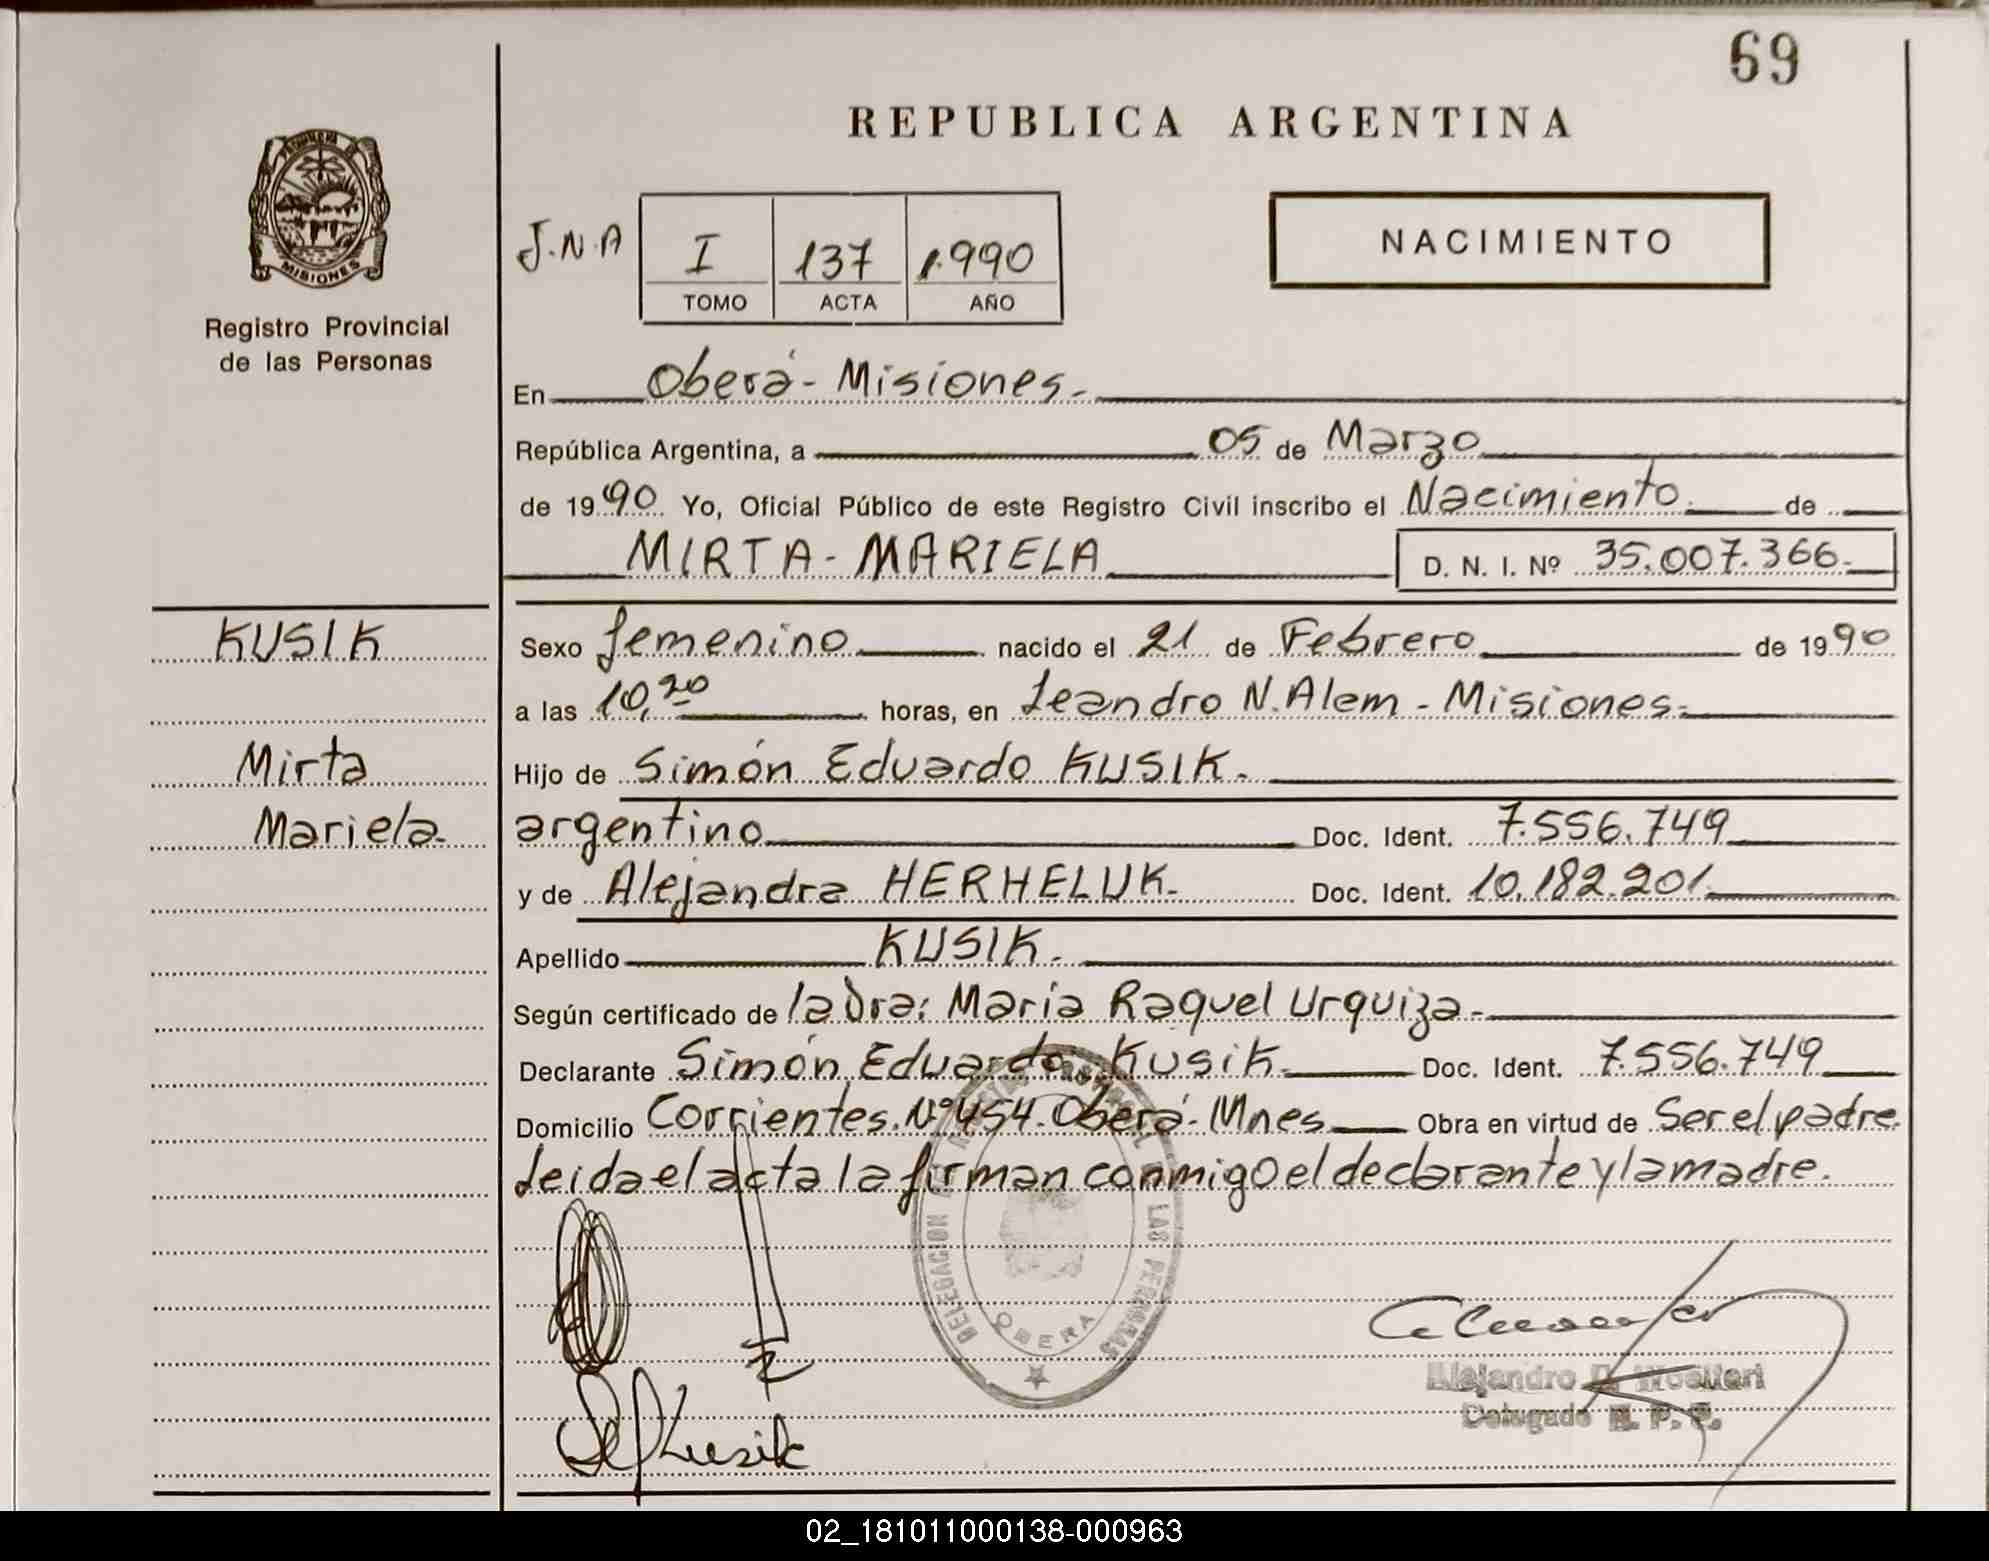 69
REPUBLICA ARGENTINA
PROVINCIA DE
MISIONES
Registro Provincial
de las Personas
J.N.A
I 137 1.990
TOMO ACTA AÑO
NACIMIENTO
En Oberá - Misiones.-
República Argentina, a 05 de Marzo
de 1990 Yo, Oficial Público de este Registro Civil inscribo el Nacimiento. de
MIRTA - MARIELA D. N. I. Nº 35.007.366.-
KUSIK
Mirta
Mariela.-
Sexo femenino nacido el 21 de Febrero de 1990
a las 10,20 horas, en Leandro N. Alem - Misiones.-
Hijo de Simón Eduardo KUSIK.-
argentino Doc. Ident. 7.556.749
y de Alejandra HERHELUK.- Doc. Ident. 10.182.201.-
Apellido KUSIK.-
Según certificado de la Dra: María Raquel Urquiza.-
Declarante Simón Eduardo Kusik.- Doc. Ident. 7.556.749
Domicilio Corrientes. Nº 454. Oberá - Mnes Obra en virtud de Ser el padre.
Leida el acta la firman conmigo el declarante y la madre.
DELEGACION LAS PERSONAS
OBERA
Kusik
Alejandro
Delegado R. P. P.
02_181011000138-000963